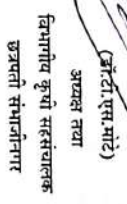 (डॉ.टी.एस.मोटे)
अध्यक्ष तथा
विभागीय कृषी सहसंचालक
छत्रपती संभाजीनगर